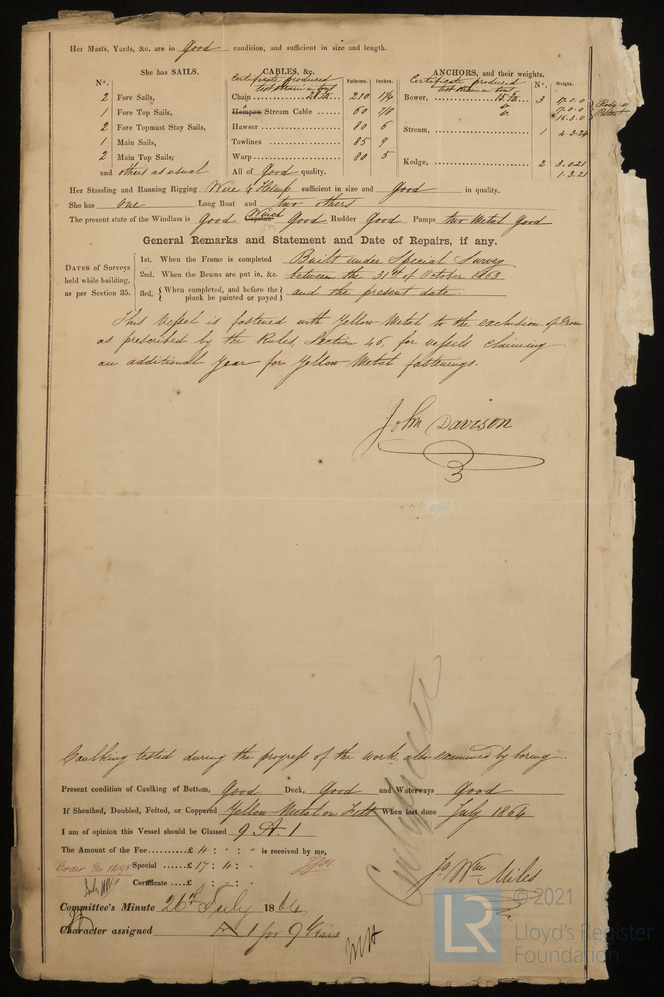 Her Masts, Yards, &c. are in Good condition, and sufficient in size and length.
She has SAILS. CABLES, &c. ANCHORS, and their weights.
Certificate produced Certificate produced
N°. Fathoms. Inches. N°. Weight.
2 Fore Sails, Chain 210 1 3 17.0.0
1 Fore Top Sails, Hempen Stream Cable 60 Bower, 17.0.0
2 Fore Topmast Stay Sails, Hawser 80 6 16.3.0
1 Main Sails, Towlines 85 9 Stream, 1 4.3.24
2 Main Top Sails; Warp 80 5 Kedge, 2 3.0.21
and others as usual All of Good quality. 1.3.21
Her Standing and Running Rigging Wire & Hemp sufficient in size and Good in quality.
She has one Long Boat and two others
The present state of the Windlass is Good Capstan Winch Good Rudder Good Pumps two Metal Good
General Remarks and Statement and Date of Repairs, if any.
DATES of Surveys held while building, as per Section 35.
1st. When the Frame is completed Built under Special Survey
2nd. When the Beams are put in, &c. between the 31st of October 1863
3rd, When completed, and before the plank be painted or payed and the present date.
This Vessel is fastened with Yellow Metal to the exclusion of Iron
as prescribed by the Rules, Section 46, for vessels claiming
an additional year for Yellow Metal fastenings.
John Davison
Caulking tested during the progress of the work, also examined by boring.
Present condition of Caulking of Bottom, Good Deck, Good and Waterways Good
If Sheathed, Doubled, Felted, or Coppered Yellow Metal on Felt When last done July 1864
I am of opinion this Vessel should be Classed 9 A 1
The Amount of the Fee £ 4 : : is received by me,
Special £ 17 : 4 :
Jo Wm Miles
Certificate £ : :
Committee's Minute 26th July 1864
Character assigned A 1 for 9 Years
© 2021
LR
Lloyd's Register
Foundation